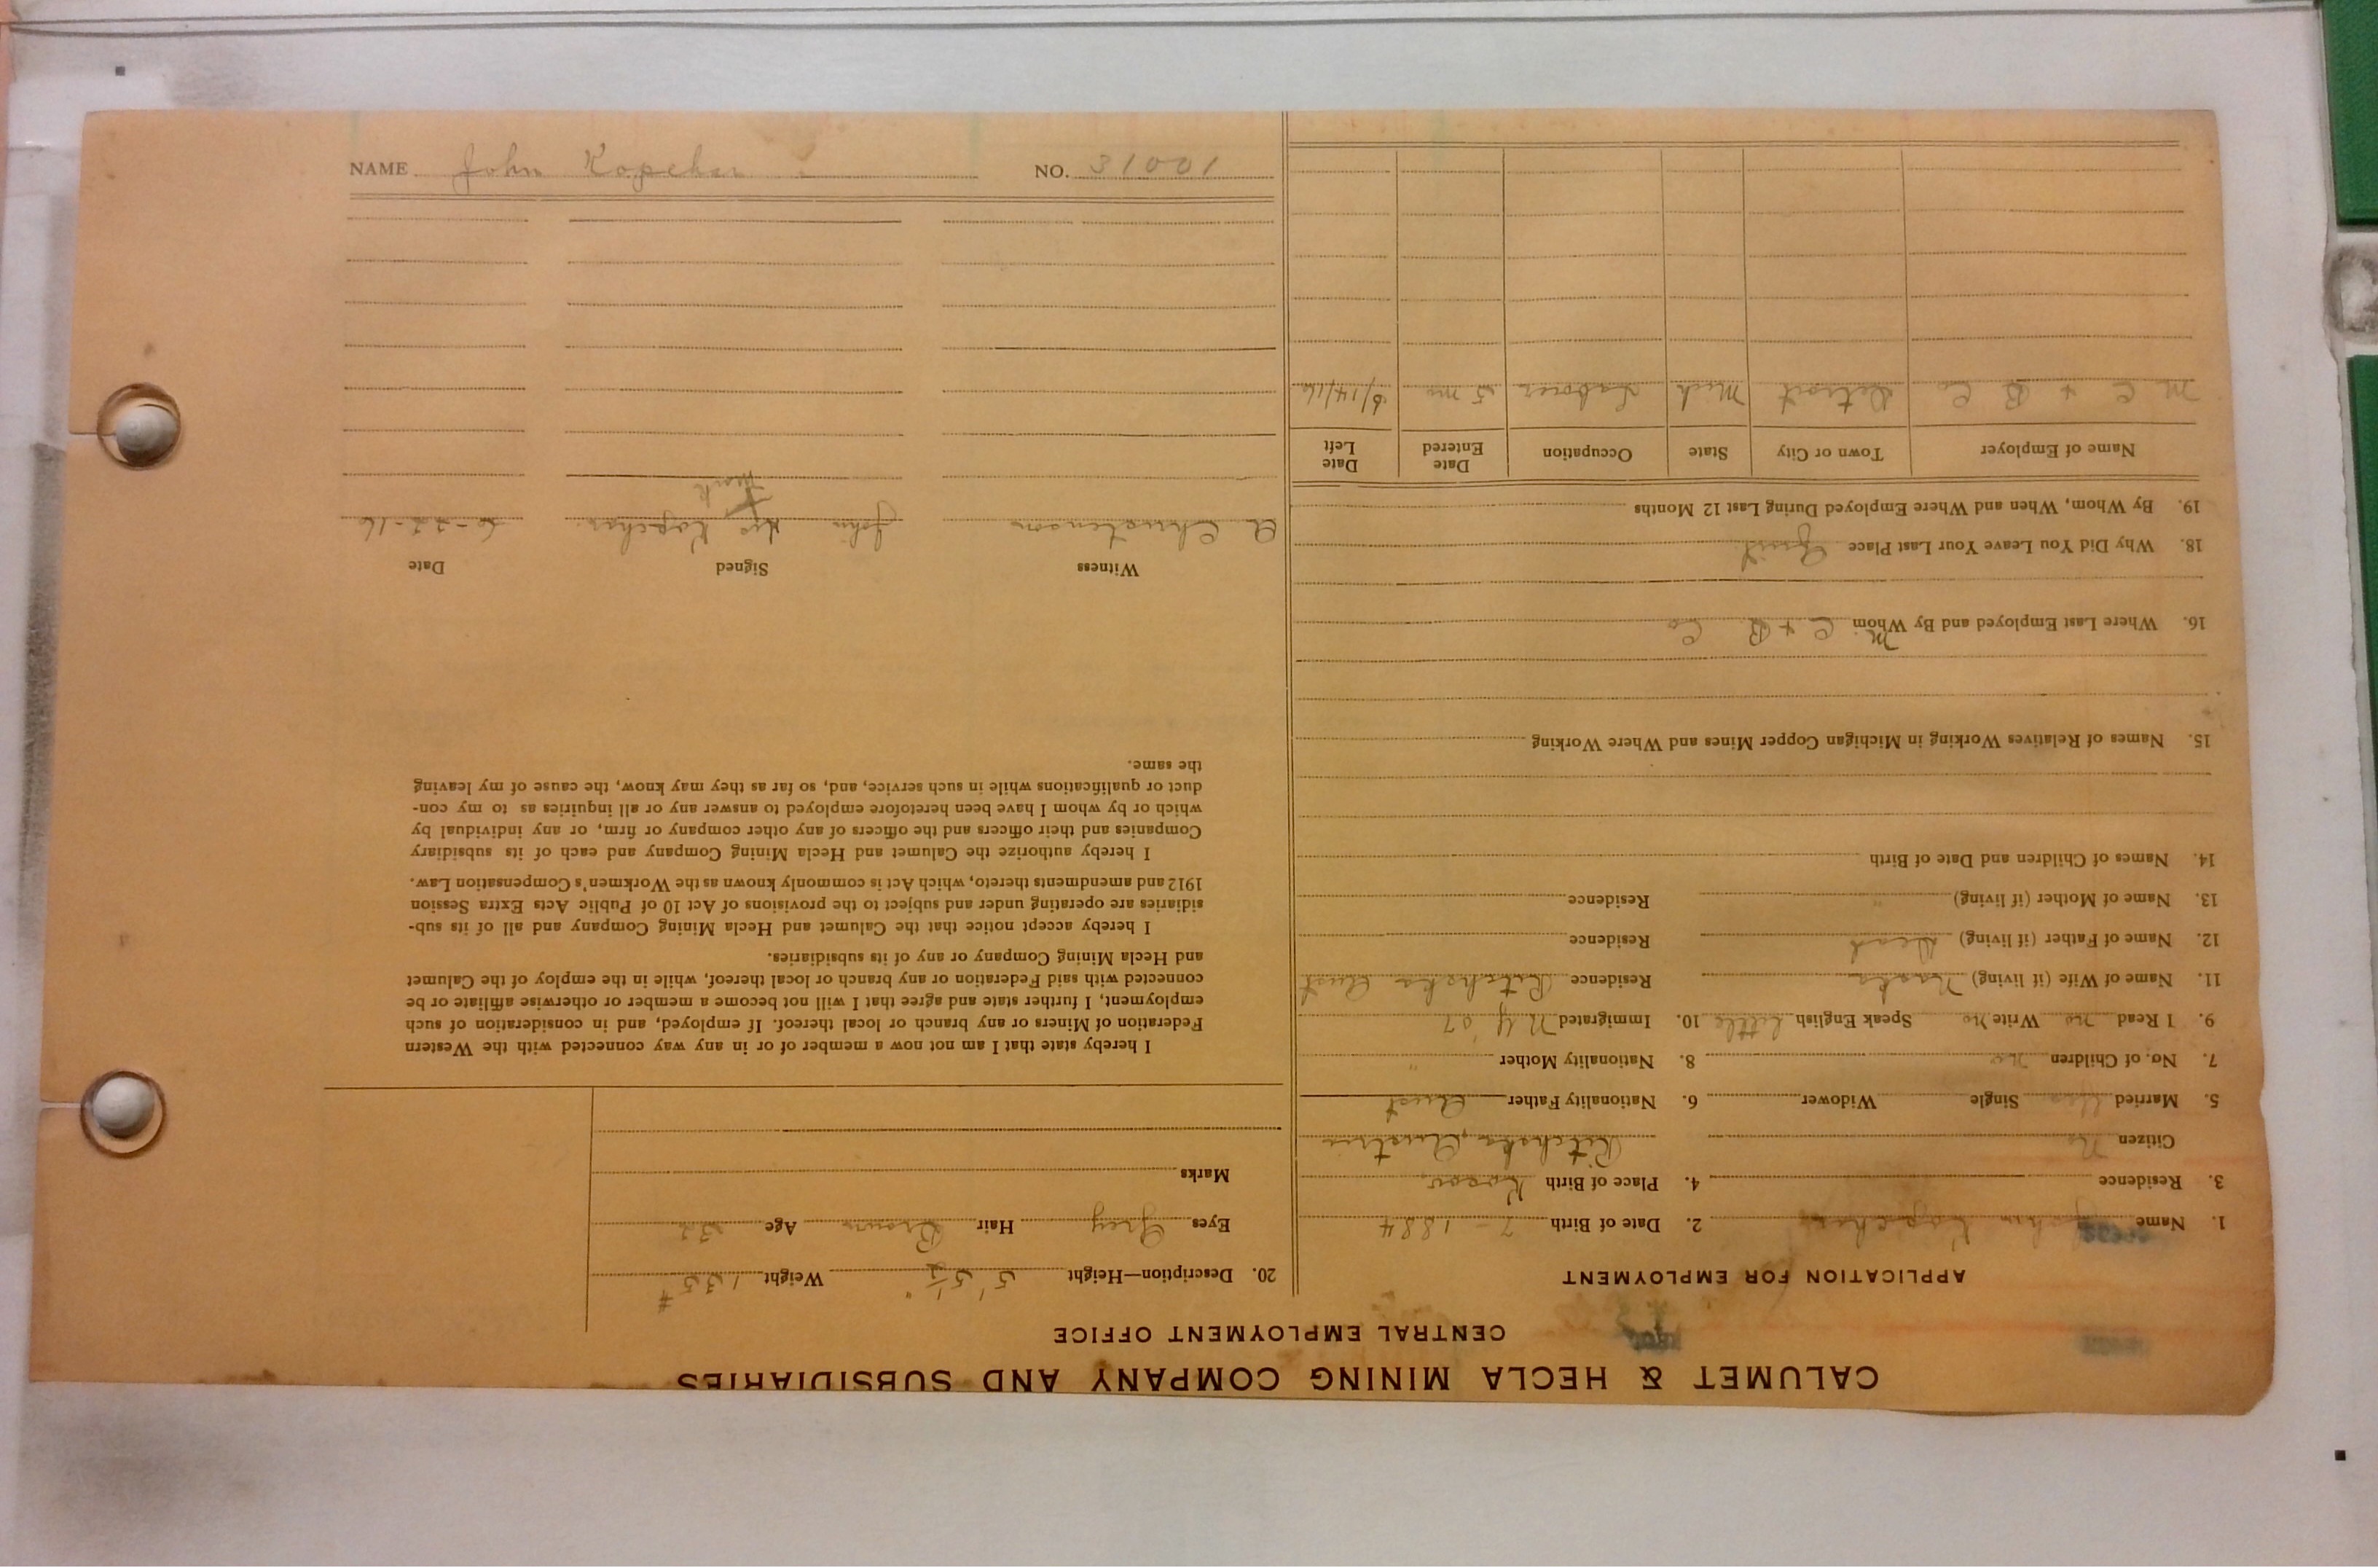 CALUMET & HECLA MINING COMPANY AND SUBSIDIARIES
CENTRAL EMPLOYMENT OFFICE
APPLICATION FOR EMPLOYMENT
1. Name John Kopchar 2. Date of Birth 7 - 1884
3. Residence 4. Place of Birth
Citizen No Austria
5. Married Yes Single Widower 6. Nationality Father Aust
7. No. of Children No 8. Nationality Mother "
9. I Read no Write no Speak English Little 10. Immigrated N Y 07
11. Name of Wife (if living) Residence Aust
12. Name of Father (if living) Dead Residence
13. Name of Mother (if living) " Residence
14. Names of Children and Date of Birth
15. Names of Relatives Working in Michigan Copper Mines and Where Working
16. Where Last Employed and By Whom M. C + B Co
18. Why Did You Leave Your Last Place Quit
19. By Whom, When and Where Employed During Last 12 Months
Name of Employer Town or City State Occupation Date Entered Date Left
M C + B Co Detroit Mich Laborer 5 mo 6/14/16
20. Description—Height 5' 5 1/2" Weight 135 #
Eyes Grey Hair Brown Age 32
Marks
I hereby state that I am not now a member of or in any way connected with the Western
Federation of Miners or any branch or local thereof. If employed, and in consideration of such
employment, I further state and agree that I will not become a member or otherwise affiliate or be
connected with said Federation or any branch or local thereof, while in the employ of the Calumet
and Hecla Mining Company or any of its subsidiaries.
I hereby accept notice that the Calumet and Hecla Mining Company and all of its sub-
sidiaries are operating under and subject to the provisions of Act 10 of Public Acts Extra Session
1912 and amendments thereto, which Act is commonly known as the Workmen's Compensation Law.
I hereby authorize the Calumet and Hecla Mining Company and each of its subsidiary
Companies and their officers and the officers of any other company or firm, or any individual by
which or by whom I have been heretofore employed to answer any or all inquiries as to my con-
duct or qualifications while in such service, and, so far as they may know, the cause of my leaving
the same.
Witness Signed Date
A Christenson John his X mark Kopchar 6-22-16
NAME John Kopchar NO. 31001